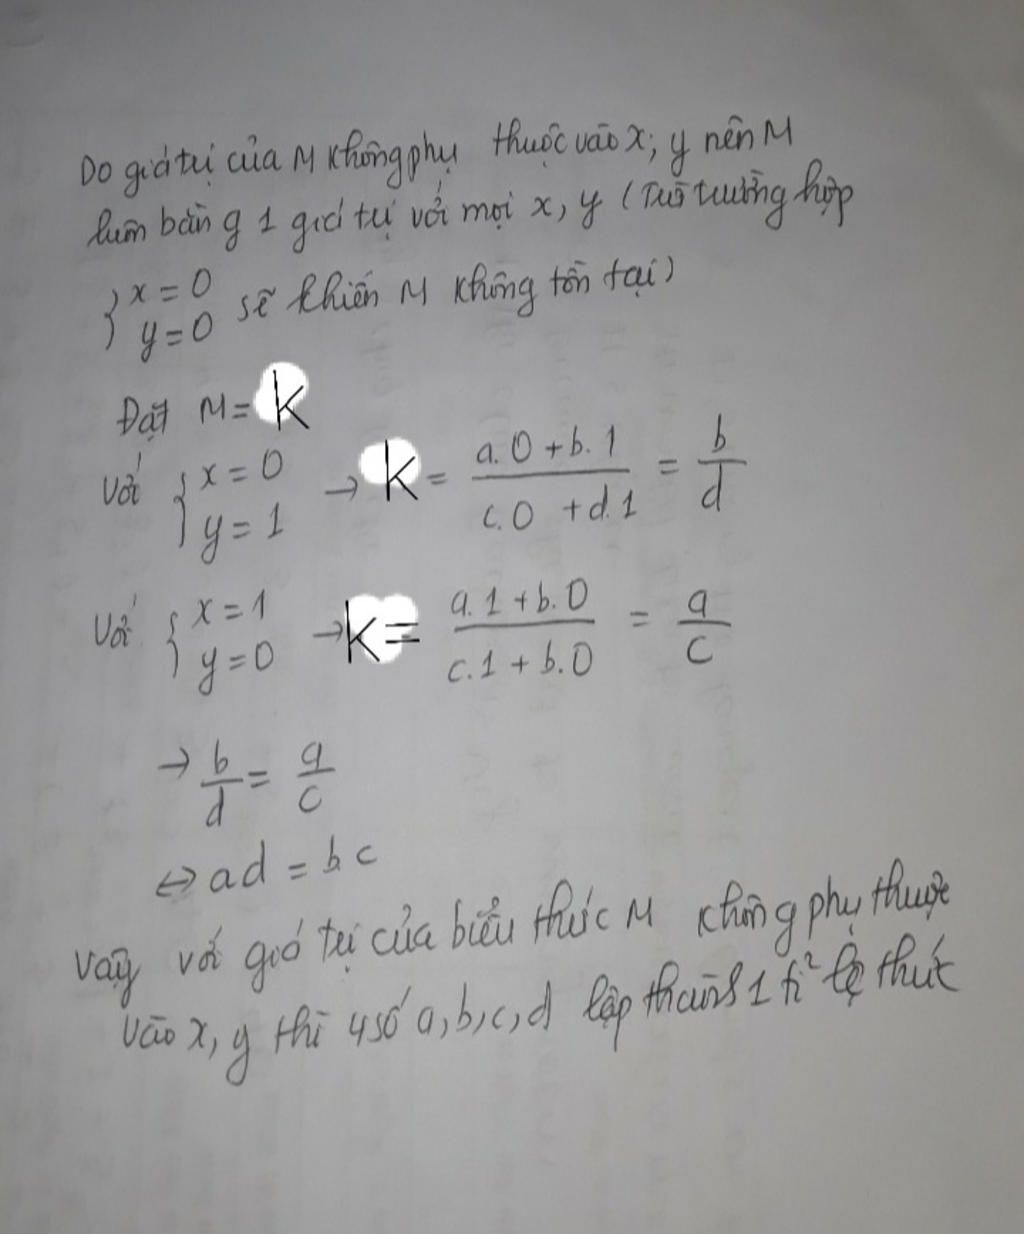 Do giá trị của M không phụ thuộc vào x; y nên M
luôn bằng 1 giá trị với mọi x, y (Trừ trường hợp
{ x = 0
y = 0 sẽ khiến M không tồn tại)
Đặt M = k
Với { x = 0 → k = a.0 + b.1 / c.0 + d.1 = b/d
y = 1
Với { x = 1 → k = a.1 + b.0 / c.1 + b.0 = a/c
y = 0
→ b/d = a/c
⇔ ad = b.c
Vậy với giá trị của biểu thức M không phụ thuộc
vào x, y thì 4 số a, b, c, d lập thành 1 tỉ² lệ thức